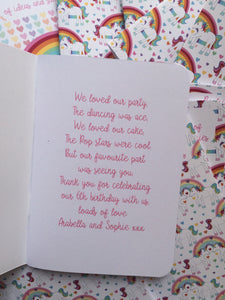 of ideas and
We loved our party,
The dancing was ace,
We loved our cake,
The Pop stars were cool
But our favourite part
was seeing you,
Thank you for celebrating
our 4th birthday with us
loads of love
Arabella and Sophie xxx